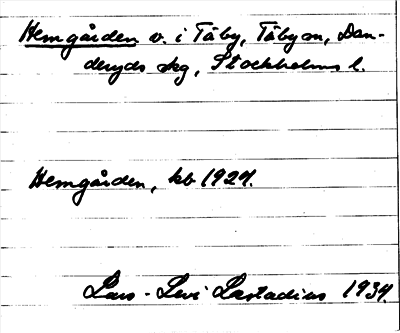 Hemgården v. i Täby, Täby sn, Dan-
deryds skg, Stockholms l.
Hemgården, kb 1927.
Lars-Levi Læstadius 1934.